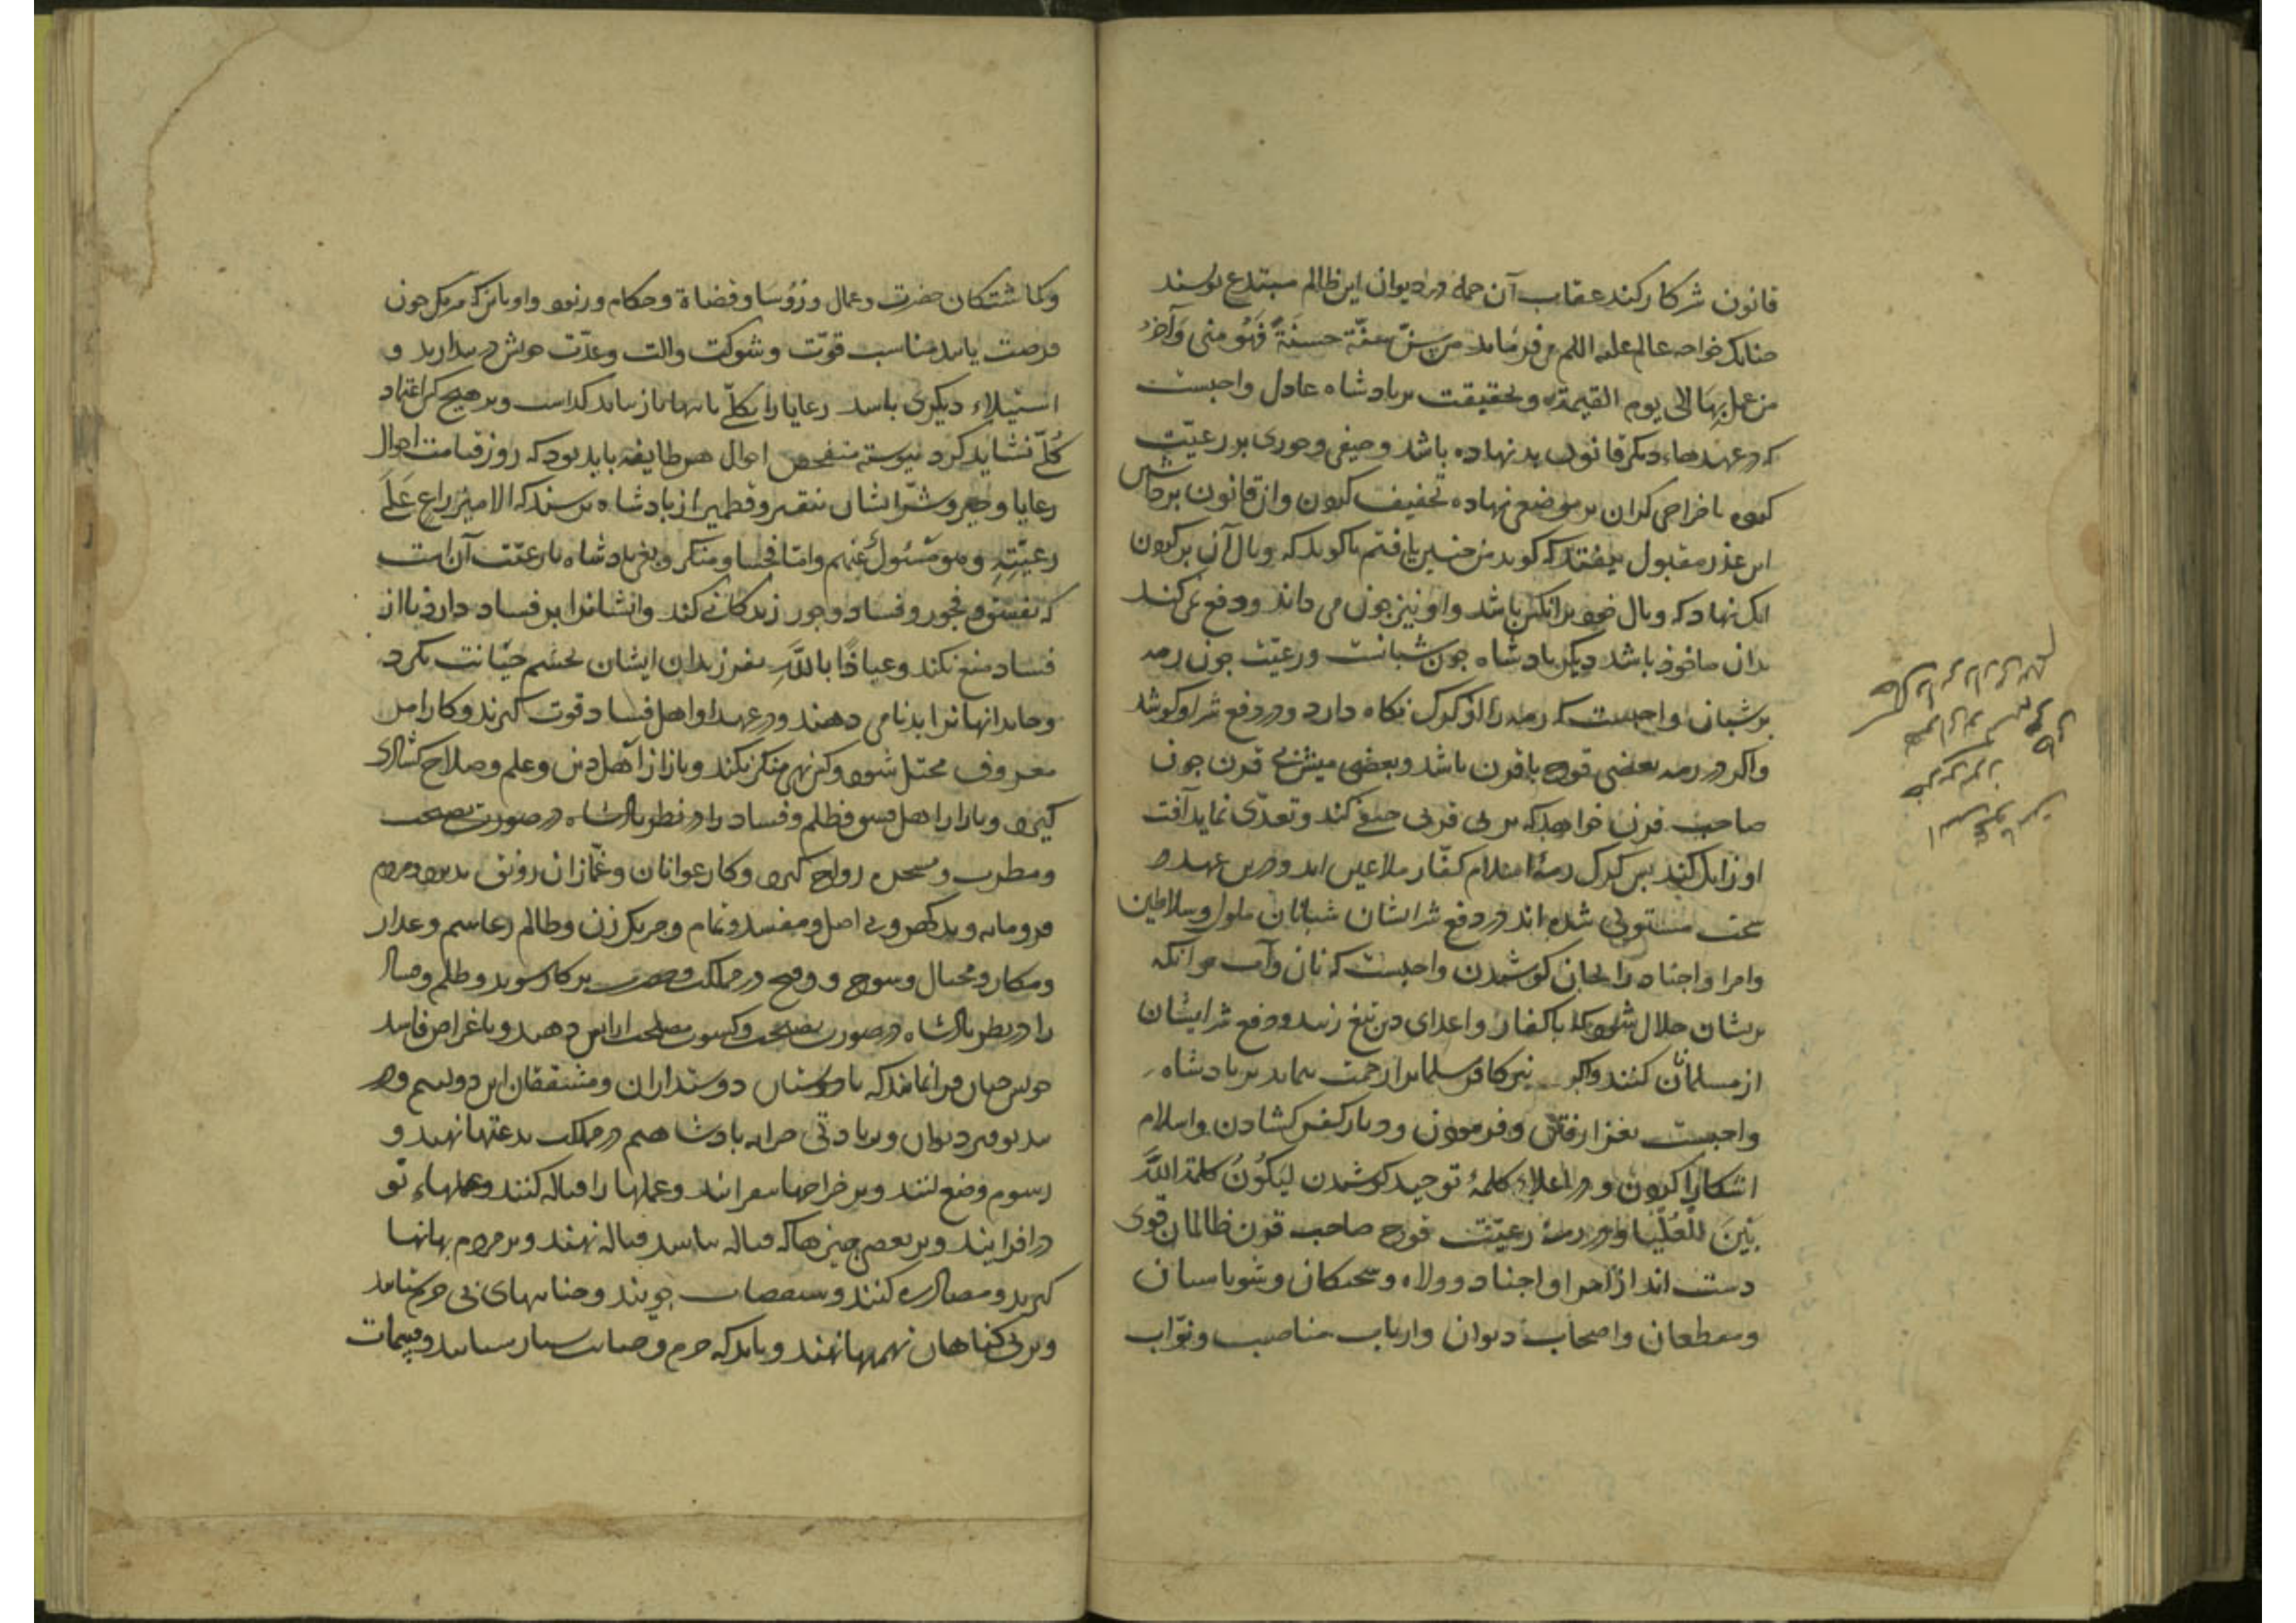 قانون شر کار کند عقاب آن جمله در دیوان این ظالم مبتدع نویسند
چنانک خواجه عالم علیه السلم می فرماید من سنّ سنّة حسنةً فَهُوَ منی وَاَجْرُ
من عمل بِهَا الی یوم القیمة و بحقیقت بر پادشاه عادل واجبست
که در عهدهاء دیگر قانون بد نهاده باشد و حیفی و جوری بر رعیّت
کرده یا خراجی گران بر موضعی نهاده تخفیف کردن و از قانون بر
این عذر مقبول نیفتد که گوید من چنین یافتم یا گوید که وبال آن بر گردن
آنک نهاد که وبال خود بر آنکس باشد و او نیز چون می داند و دفع نمی کند
بدان ماخوذ باشد دیگر پادشاه چون شبانست و رعیّت چون رمه
بر شبان واجبست که رمه را از گرگ نگاه دارد و در دفع شر او کوشد
و اگر در رمه بعضی قوچ با قرن باشد و بعضی میش بی قرن چون
صاحب قرن خواهد که بر بی قرنی حیفی کند و تعدّی نماید آفت
او زایل کند پس گرگ رمهٔ اسلام کفّار ملاعین اند و درین عهد و
سخت مستولی شده اند در دفع شر ایشان شبانان ملوک و سلاطین
و امرا و اجناد را بجان کوشیدن واجبست که نان و آب هر آنکه
بریشان حلال شود که با کفار و اعدای دین تیغ زنند و دفع شر ایشان
از مسلمانان کنند و اگر نیز کافر مسلمانرا زحمت ننماید بر پادشاه
واجبست بغزا رفتن و فرمودن و دیار کفر گشادن و اسلام
اشکارا کردن و در اعلاء کلمهٔ توحید کوشیدن لِیَکُونُ کلمة اللّهِ
هِیَ الْعُلْیَا و در رمهٔ رعیّت قوچ صاحب قرن ظالمان قوی
دست اند از امرا و اجناد و ولاه و شحنکان و شوباسیان
و مقطعان و اصحاب دیوان و ارباب مناصب و نوّاب
و گماشتگان حضرت و عمال و رؤسا و قضاة و حکام و رنود و اوباش که هر یک چون
فرصت یابند مناسب قوّت و شوکت و الت و عدّت خویش در بیدارند و
استیلاء دیگری باشد رعایا را بکلّ بانها باز نباید گذاشت و بر هیچ کس اعتماد
کُلّ نشاید کرد پیوسته متفحص احوال هر طایفه باید بود که روز قیامت احوال
رعایا و خیر و شرّ ایشان بنقیر و قطمیر از پادشاه پرسند که الامیرُ راعٍ عَلَی
رعیّتِهِ و هو مَسْئولٌ عَنهم و امّا فحشا و منکر و بغی پادشاه با رعیّت آن است
که بفسق و فجور و فساد و جور زندگانی کند و ایشانرا بر فساد دارد یا از
فساد منع نکند و عیاذًا باللّهِ بفرزندان ایشان بچشم خیانت نگرد
و خاندانهاشانرا بدنامی دهند و در عهد او اهل فساد قوت گیرند و کار امر
معروف مختل شود و کس نهی منکر نکند و بازار اهل دین و علم و صلاح کسادی
گیرد و بازار اهل فسق و ظلم و فساد را در نظر پادشاه در صورت نصیحت
و مطرب و مسخره رواج گیرد و کار عوانان و غمّازان رونق پذیرد و مردم
فرومایه و بدگهر و بی اصل و مفسد و نمّام و حریک زن و ظالم و غدار
و مکار و محتال و در مملکت و حضرت بر کار شوند و ظلم و فساد
را در نظر پادشاه در صورت نصیحت و کسوت مصلحت ارایش دهند و باغراض فاسد
خویش چنان فرا نمایند که ما دوستان دوستداران و مشفقان این دولتیم و در
بند توفیر دیوان و زیادتی خزانه پادشاهیم در مملکت بدعتها نهند و
رسوم وضع کنند و بر خراجها بیفزایند و عملها را قباله کنند و عملهاء نو
درافزایند و بر بعضی چیزها که قباله نباشد قباله نهند و بر مردم بهانها
گیرند و مصادره کنند و جویند و خیانتهای بی
و بر بی گناهان تهمتها نهند و باید که جرم و خیانت بسیار ستانند و قسمات